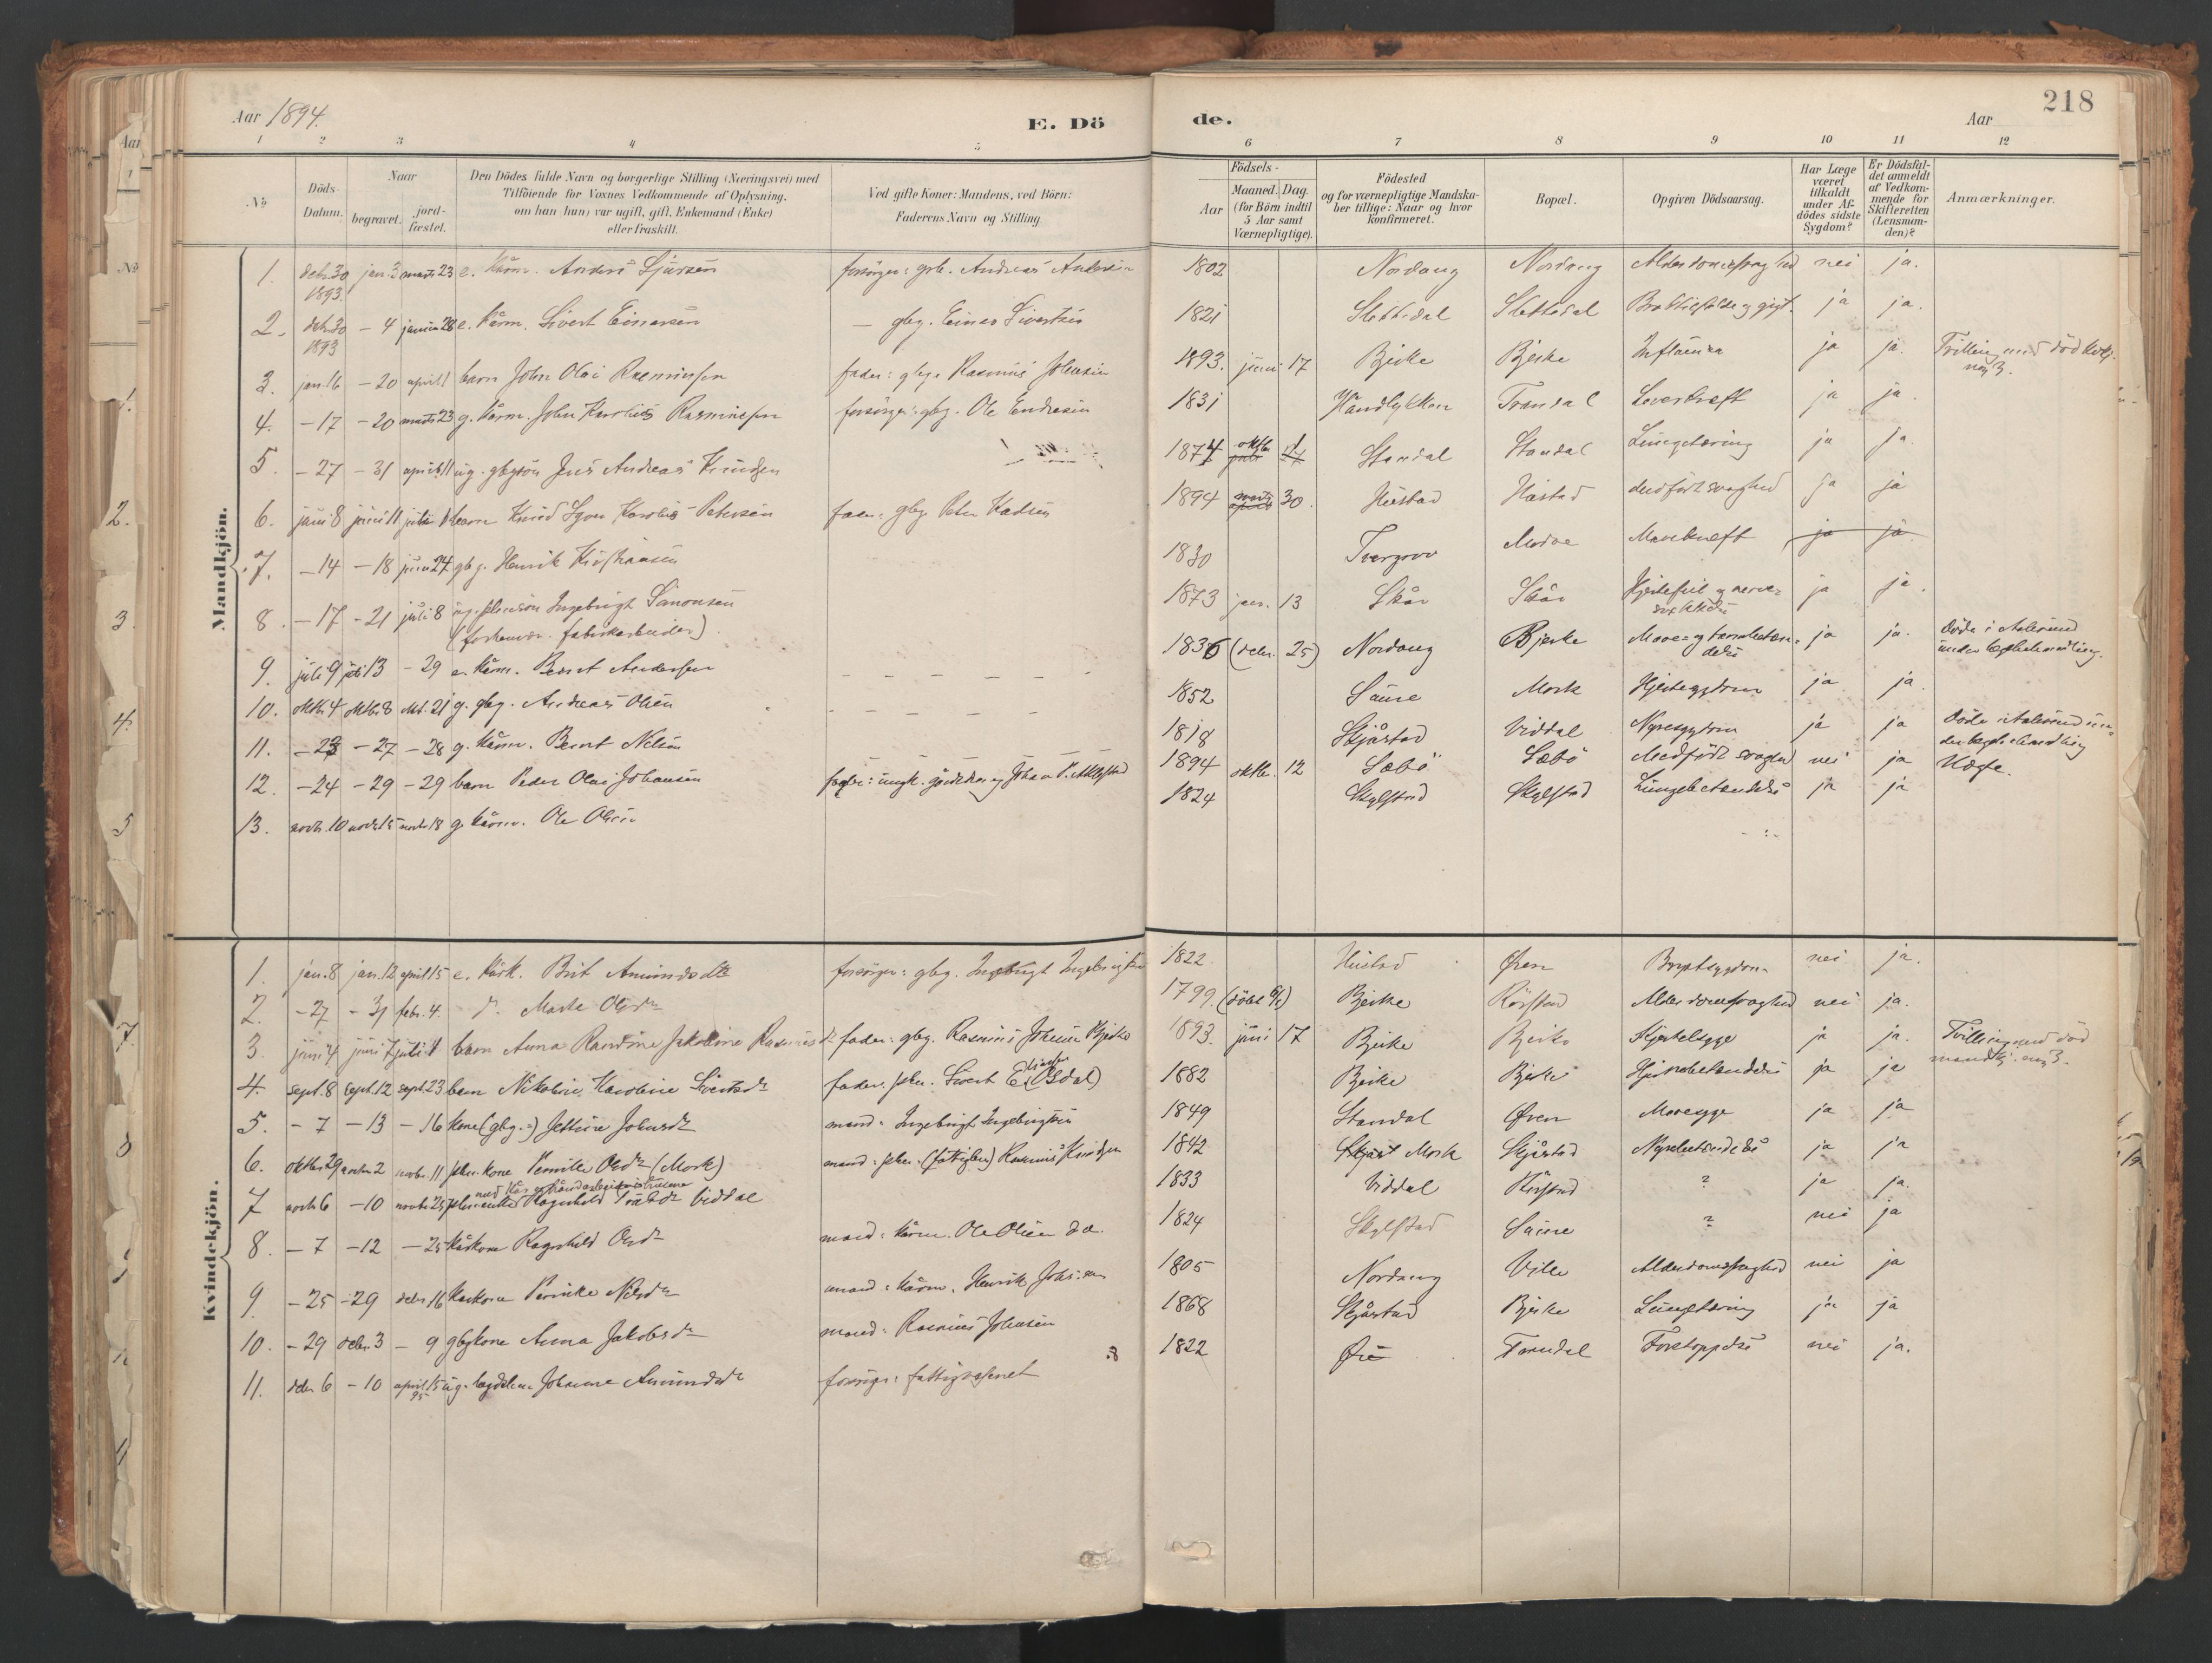 Aar 1894.
E. Dö
de.
Aar
218
1 2 3 4 5 6 7 8 9 10 11 12
No
Döds-Datum.
Naar
begravet.
jord-fæstet.
Den Dödes fulde Navn og borgerlige Stilling (Næringsvei) med
Tilföiende for Voxnes Vedkommende af Oplysning,
om han (hun) var ugift, gift, Enkemand (Enke)
eller fraskilt.
Ved gifte Koner: Mandens, ved Börn:
Faderens Navn og Stilling.
Födsels-
Aar
Maaned.
Dag.
(for Börn indtil
5 Aar samt
Værnepligtige).
Födested
og for værnepligtige Mandska-
ber tillige: Naar og hvor
konfirmeret.
Bopæl.
Opgiven Dödsaarsag.
Har Læge
været
tilkaldt
under Af-
dödes sidste
Sygdom?
Er Dödsfal-
det anmeldt
af Vedkom-
mende for
Skifteretten
(Lensman-
den)?
Anmærkninger.
Mandkjön.
1. decbr. 30 1893. jan. 3 marts 23 e. kårm. Anders Sjursen forsörger: gbr. Andreas Andersen 1802 Nordang Nordang Alderdomssvaghed nei ja.
2. decbr. 30 1893 – 4 28 e. kårm. Sivert Einarsen – gbg. Einar Sivertsen 1821 Slettedal Slettedal ja ja.
3. jan. 16 – 20 april 1 barn John Olai Rasmussen fader: gbg. Rasmus Johnsen 1893. juni 17 Bjerke Bjerke Influenza ja ja. Trilling med död kvkj. no 3.
4. – 17 – 20 marts 23 g. kårm. John Karolus Rasmussen forsörger: gbg. Ole Endresen 1831 Håndlykken Trandal Leverkræft ja ja.
5. – 27 – 31 april 11 ug. gbgsön Jens Andreas Knudsen 1874 oktbr. Standal Standal Lungetæring ja ja.
6. juni 8 juni 11 juli 1 barn Knud Karolus Petersen fader: gbg. Peter 1894 marts 30 Hustad Hustad Medfödt svaghed ja ja
7. – 14 – 18 juni 24 gbg. Henrik Kristiansen 1830 Tvergrov Mavekræft ja ja
8. – 17 – 21 juli 8 ug. Ingebrigt Simonsen
(forhenvær. fabrikarbeider) 1873 jan. 13 Skår Skår Hjertefeil og nerve- ja ja.
9. juli 9 juli 13 – 29 e. kårm. Bernt Andersen – – – – – – 1836 (decbr. 25) Nordang Bjerke ja ja. Döde i Aalesund
under lægebehandling.
10. oktbr. 4 oktbr. 8 okt. 21 g. gbg. Andreas Olsen – – – – – 1852 Saure Mork Hjertesygdom ja ja.
11. – 23 – 27 – 28 g. kårm. Bernt Nilsen 1818 Skjåstad Viddal Nyresygdom ja ja Döde i Aalesund un-
der lægebehandling
12. – 24 – 29 – 29 barn Peder Olai Johansen fader: ungk. Johan P. 1894 oktbr. 12 Sæbö Sæbö Medfödt svaghed nei ja Uægte.
13. novbr. 10 novbr. 15 novbr. 18 g. kårm. Ole Olsen 1824 Skylstad Skylstad Lungebetændelse ja ja
Kvindekjön.
1. jan. 8 jan. 12 april 15 e. kårk. Brit Amundsdtr. forsörger: gbg. Ingebrigt Ingebrigtsen 1822 Hustad Øren Brystsygdom nei ja.
2. – 27 – 31 febr. 4. d. Marte Olsdr. 1799. Bjerke Rörstad Alderdomssvaghed nei ja.
3. juni 4 juni 7 juli 1 barn Anna Randine Jakobine Rasmusdr fader: gbg. Rasmus Johnsen Bjerke 1893. juni 17 Bjerke Bjerke Kjertelsyge ja ja. Trilling med död
mandkj. no 3.
4. sept. 8 sept. 12 sept. 23 barn Nikoline Karoline Sivertsdr fader: Sivert (Øsdal) 1882 Bjerke Bjerke ja ja
5. – 7 – 13 – 16 kone (gbg.=) Jettine Johnsdr mand: Ingebrigt Ingebrigtsen 1849 Standal Øren Mavesyge ja ja
6. oktbr. 29 novbr. 2 novbr. 11 kone Pernille Olsdr (Mork) mand: Rasmus Knudsen 1842 Mork Skjåstad Nyrebetændelse ja ja
7 novbr. 6 – 10 novbr. 25 Ragnhild Viddal 1833 Viddal ? ja ja.
8. – 7 – 12 – 25 kårkone Ragnhild Olsdr mand: kårm. Ole Olsen 1824 Skylstad Saure ? nei ja
9. – 25 – 29 decbr. 16 kårkone Nilsdr mand: kårm. Henrik 1805 Nordang Alderdomssvaghed nei ja
10. – 29 decbr. 3 – 9 gbgkone Anna Jakobsdr mand: Rasmus Johnsen 1868 Skjåstad Bjerke Lungetæring ja ja
11. decbr. 6 – 10 april 15 95 ug. Johanne Amundsdr forsörger: fattigvæsenet 1822 Trandal Forstoppelse nei ja.